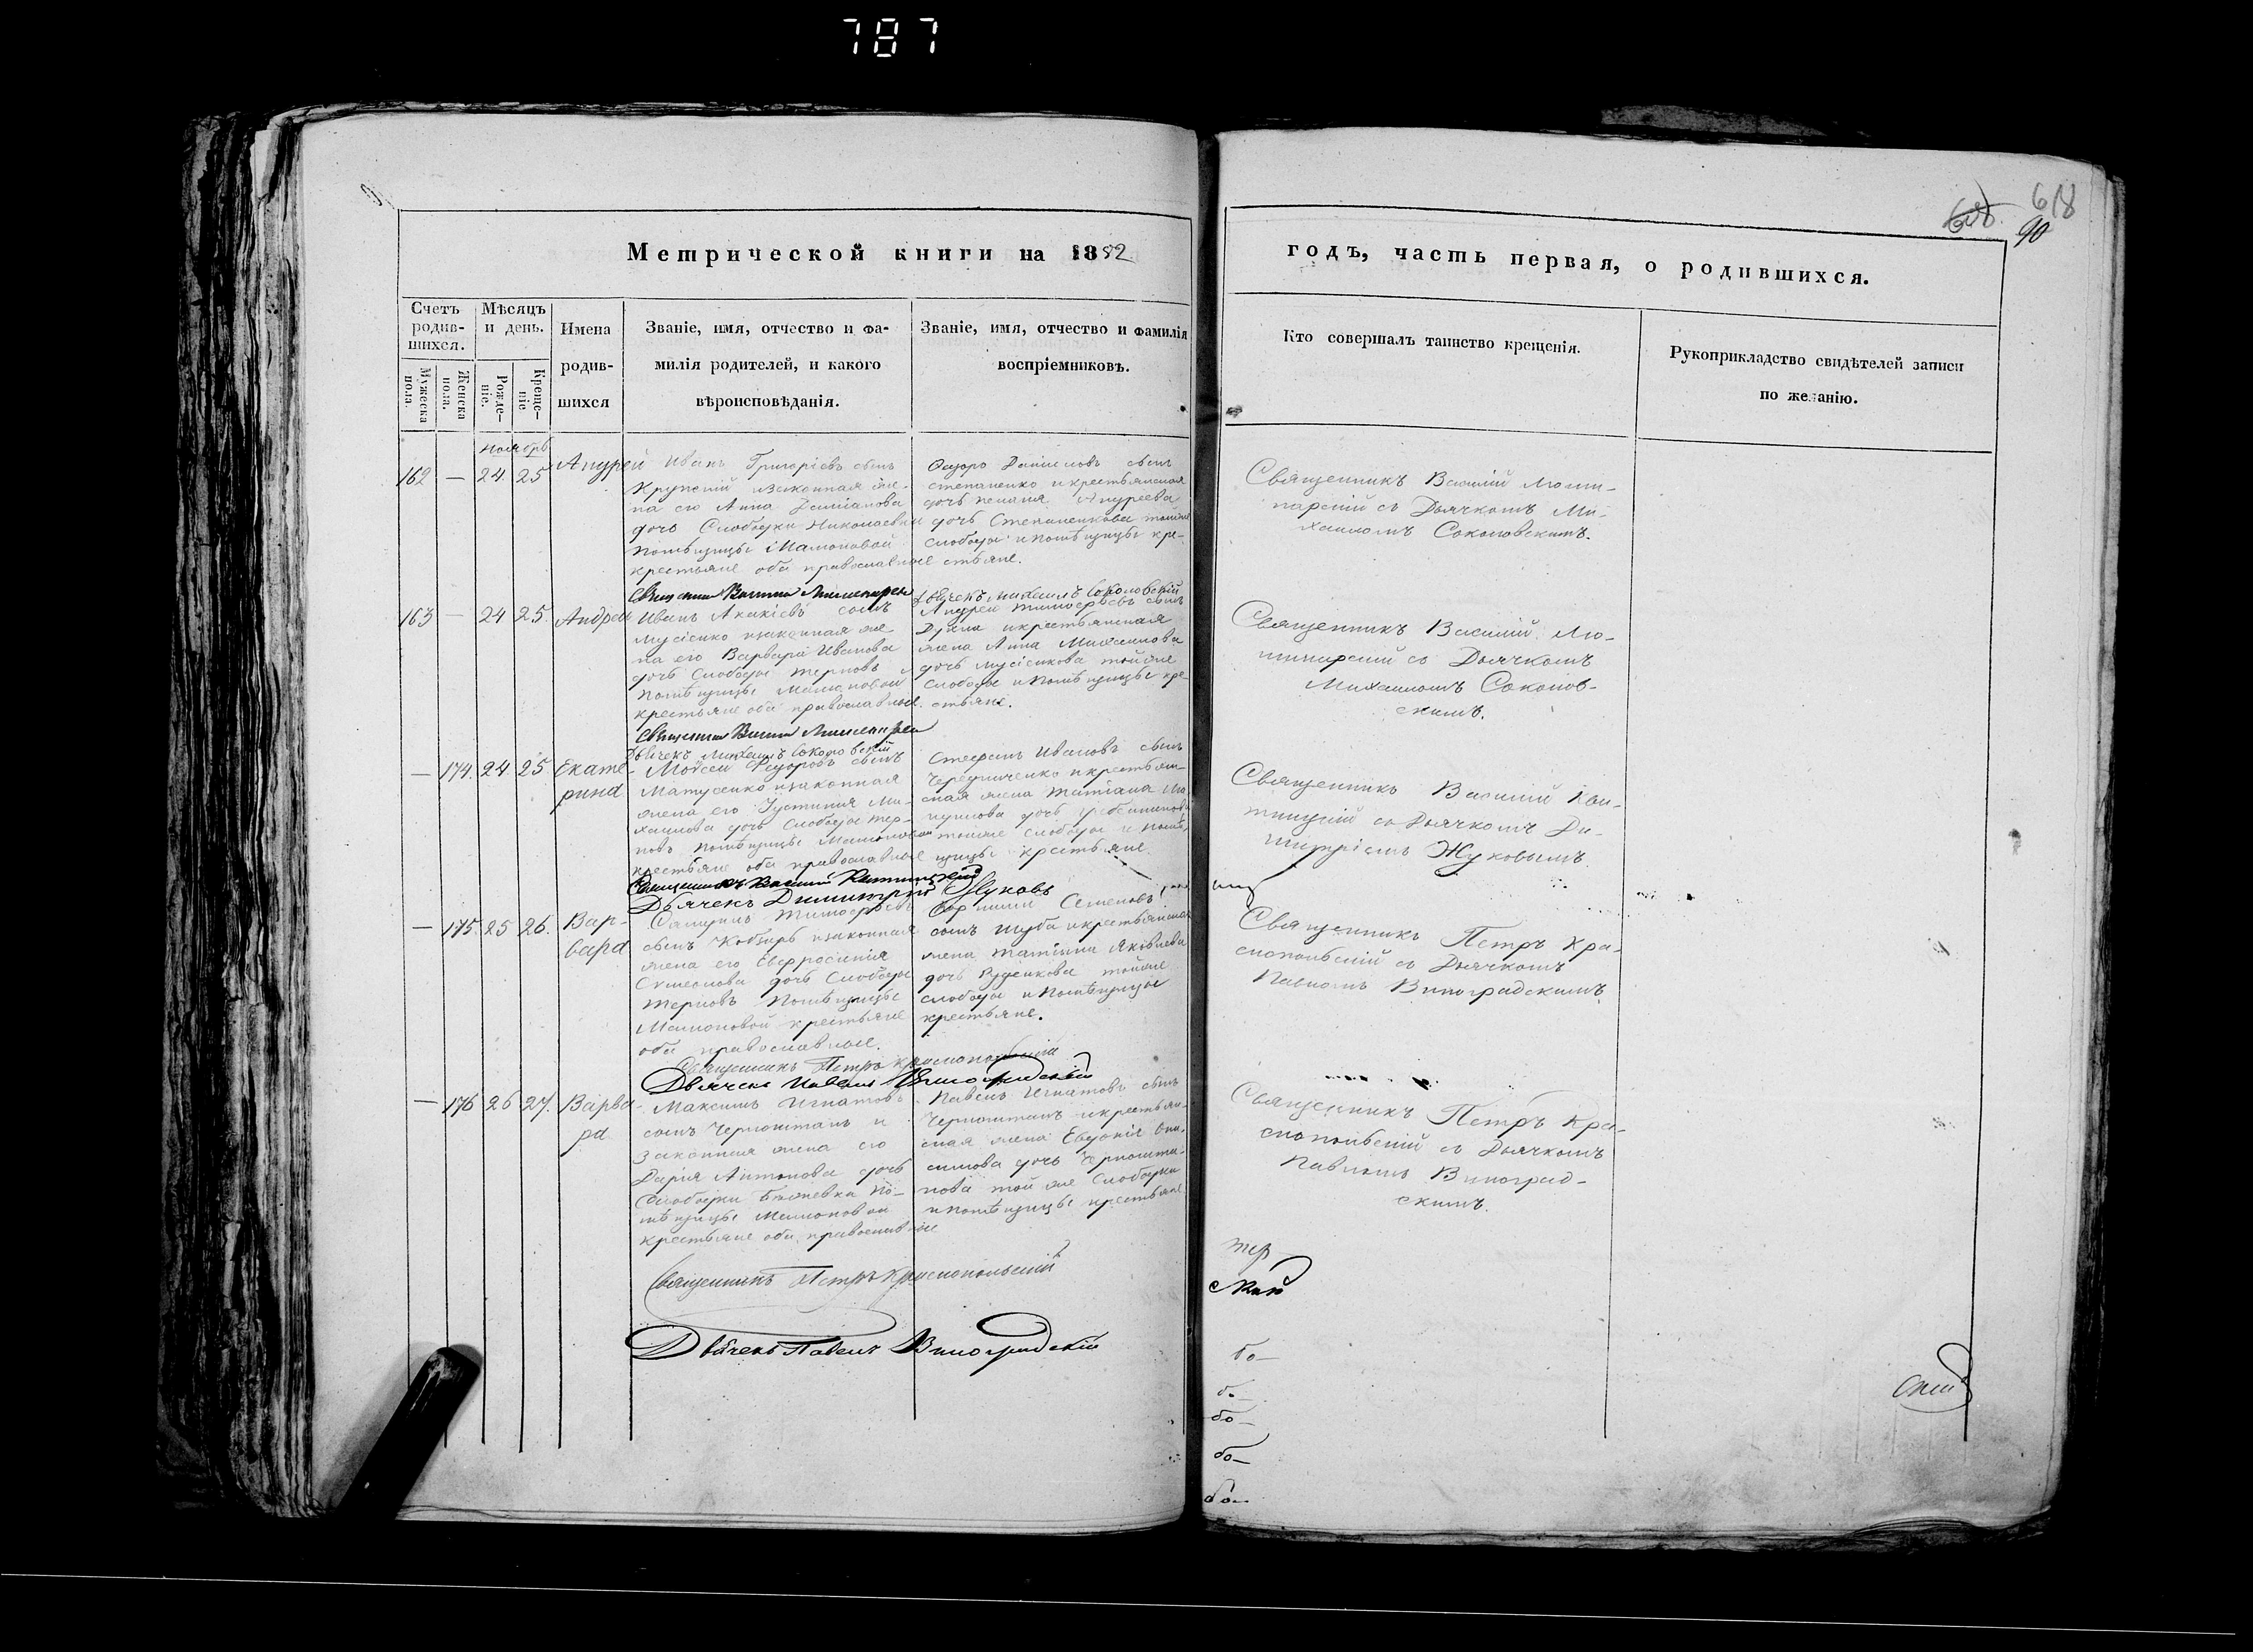 787
618
90
Метрической книги на 1852
годъ, часть первая, о родившихся.
Счетъ родив-шихся.
Мѣсяцъ и день.
Имена родив-шихся
Званіе, имя, отчество и фа-
милія родителей, и какого
вѣроисповѣданія.
Званіе, имя, отчество и фамилія
воспріемниковъ.
Кто совершалъ таинство крещенія.
Рукоприкладство свидѣтелей записи
по желанію.
Мужеска пола.
Женска пола.
Рожде-ніе.
Креще-ніе
Ноябрь
162 — 24. 25 Андрей
Иванъ Григоріевъ сынъ
Крупскій изаконная же-
на его Анна Даміанова
дочь Слободки Николаевки
Помѣщицы Мамоновой
крестьяне оба православные
степаненко икрестьянская
дочь Андреева
дочь Степаненкова тойже
слободы и Помѣщицы кре-
стьяне.
Священникъ Василій
парскій съ Дьячкомъ Ми-
хаиломъ Соколовскимъ.
Дьячекъ Михаилъ Соколовскій
163 — 24 25. Андрей
Иванъ Акакіевъ сынъ
Мусіенко изаконная же
на его Варвара Иванова
дочь Слободы Терновъ
Помѣщицы Мамоновой
крестьяне оба православные.
Андрей Тимоѳеевъ сынъ
икрестьянская
жена Анна Михайлова
дочь Мусіенкова тойже
Слободы и Помѣщицы кре
стьяне.
Священникъ Василій
съ Дьячкомъ
Михаиломъ Соколов-
скимъ.
Дьячекъ Михаилъ Соколовскій
— 174. 24 25 Екате-
рина
Мойсей Ѳедоровъ сынъ
Матусенко изаконная
жена его Устинія Ми-
хаилова дочь Слободы Тер-
новъ Помѣщицы Мамоновой
крестьяне оба православные
Стефанъ Ивановъ сынъ
Чередниченко икрестьян-
ская жена Татіана
дочь
тойже Слободы и Помѣ-
щицы крестьяне
Священникъ Василій
съ Дьячкомъ Ди-
митріемъ Жуковымъ.
Дьячекъ Димитрій Жуковъ
— 175. 25 26. Вар-
вара
Тимоѳеевъ
сынъ Кобзарь изаконная
жена его Евфросинія
Симеонова дочь Слободы
Терновъ Помѣщицы
Мамоновой крестьяне
оба православные.
Семеновъ
сынъ Шуба икрестьянская
жена Татіана Яковлева
дочь Руденкова тойже
слободы и Помѣщицы
крестьяне.
Священникъ Петръ Кра-
снопольскій съ Дьячкомъ
Павломъ Виноградскимъ
Священникъ Петръ Краснопольскій
Дьячекъ Павелъ Виноградскій
— 176 26 27. Варва-
ра
Максимъ Игнатовъ
сынъ Черноштанъ и
законная жена его
Дарія Антонова дочь
Слободки Бѣляевки По-
мѣщицы Мамоновой
крестьяне оба православные
Павелъ Игнатовъ сынъ
Черноштанъ икрестьян-
ская жена Евдокія Они-
симова дочь Черношта-
нова той же Слободки
и Помѣщицы крестьяне
Священникъ Петръ Кра-
снопольскій съ Дьячкомъ
Павломъ Виноград-
скимъ.
Священникъ Петръ Краснопольскій
Дьячекъ Павелъ Виноградскій
тер
ской
бо—
бо—
бо—
бо—
бо—
скій